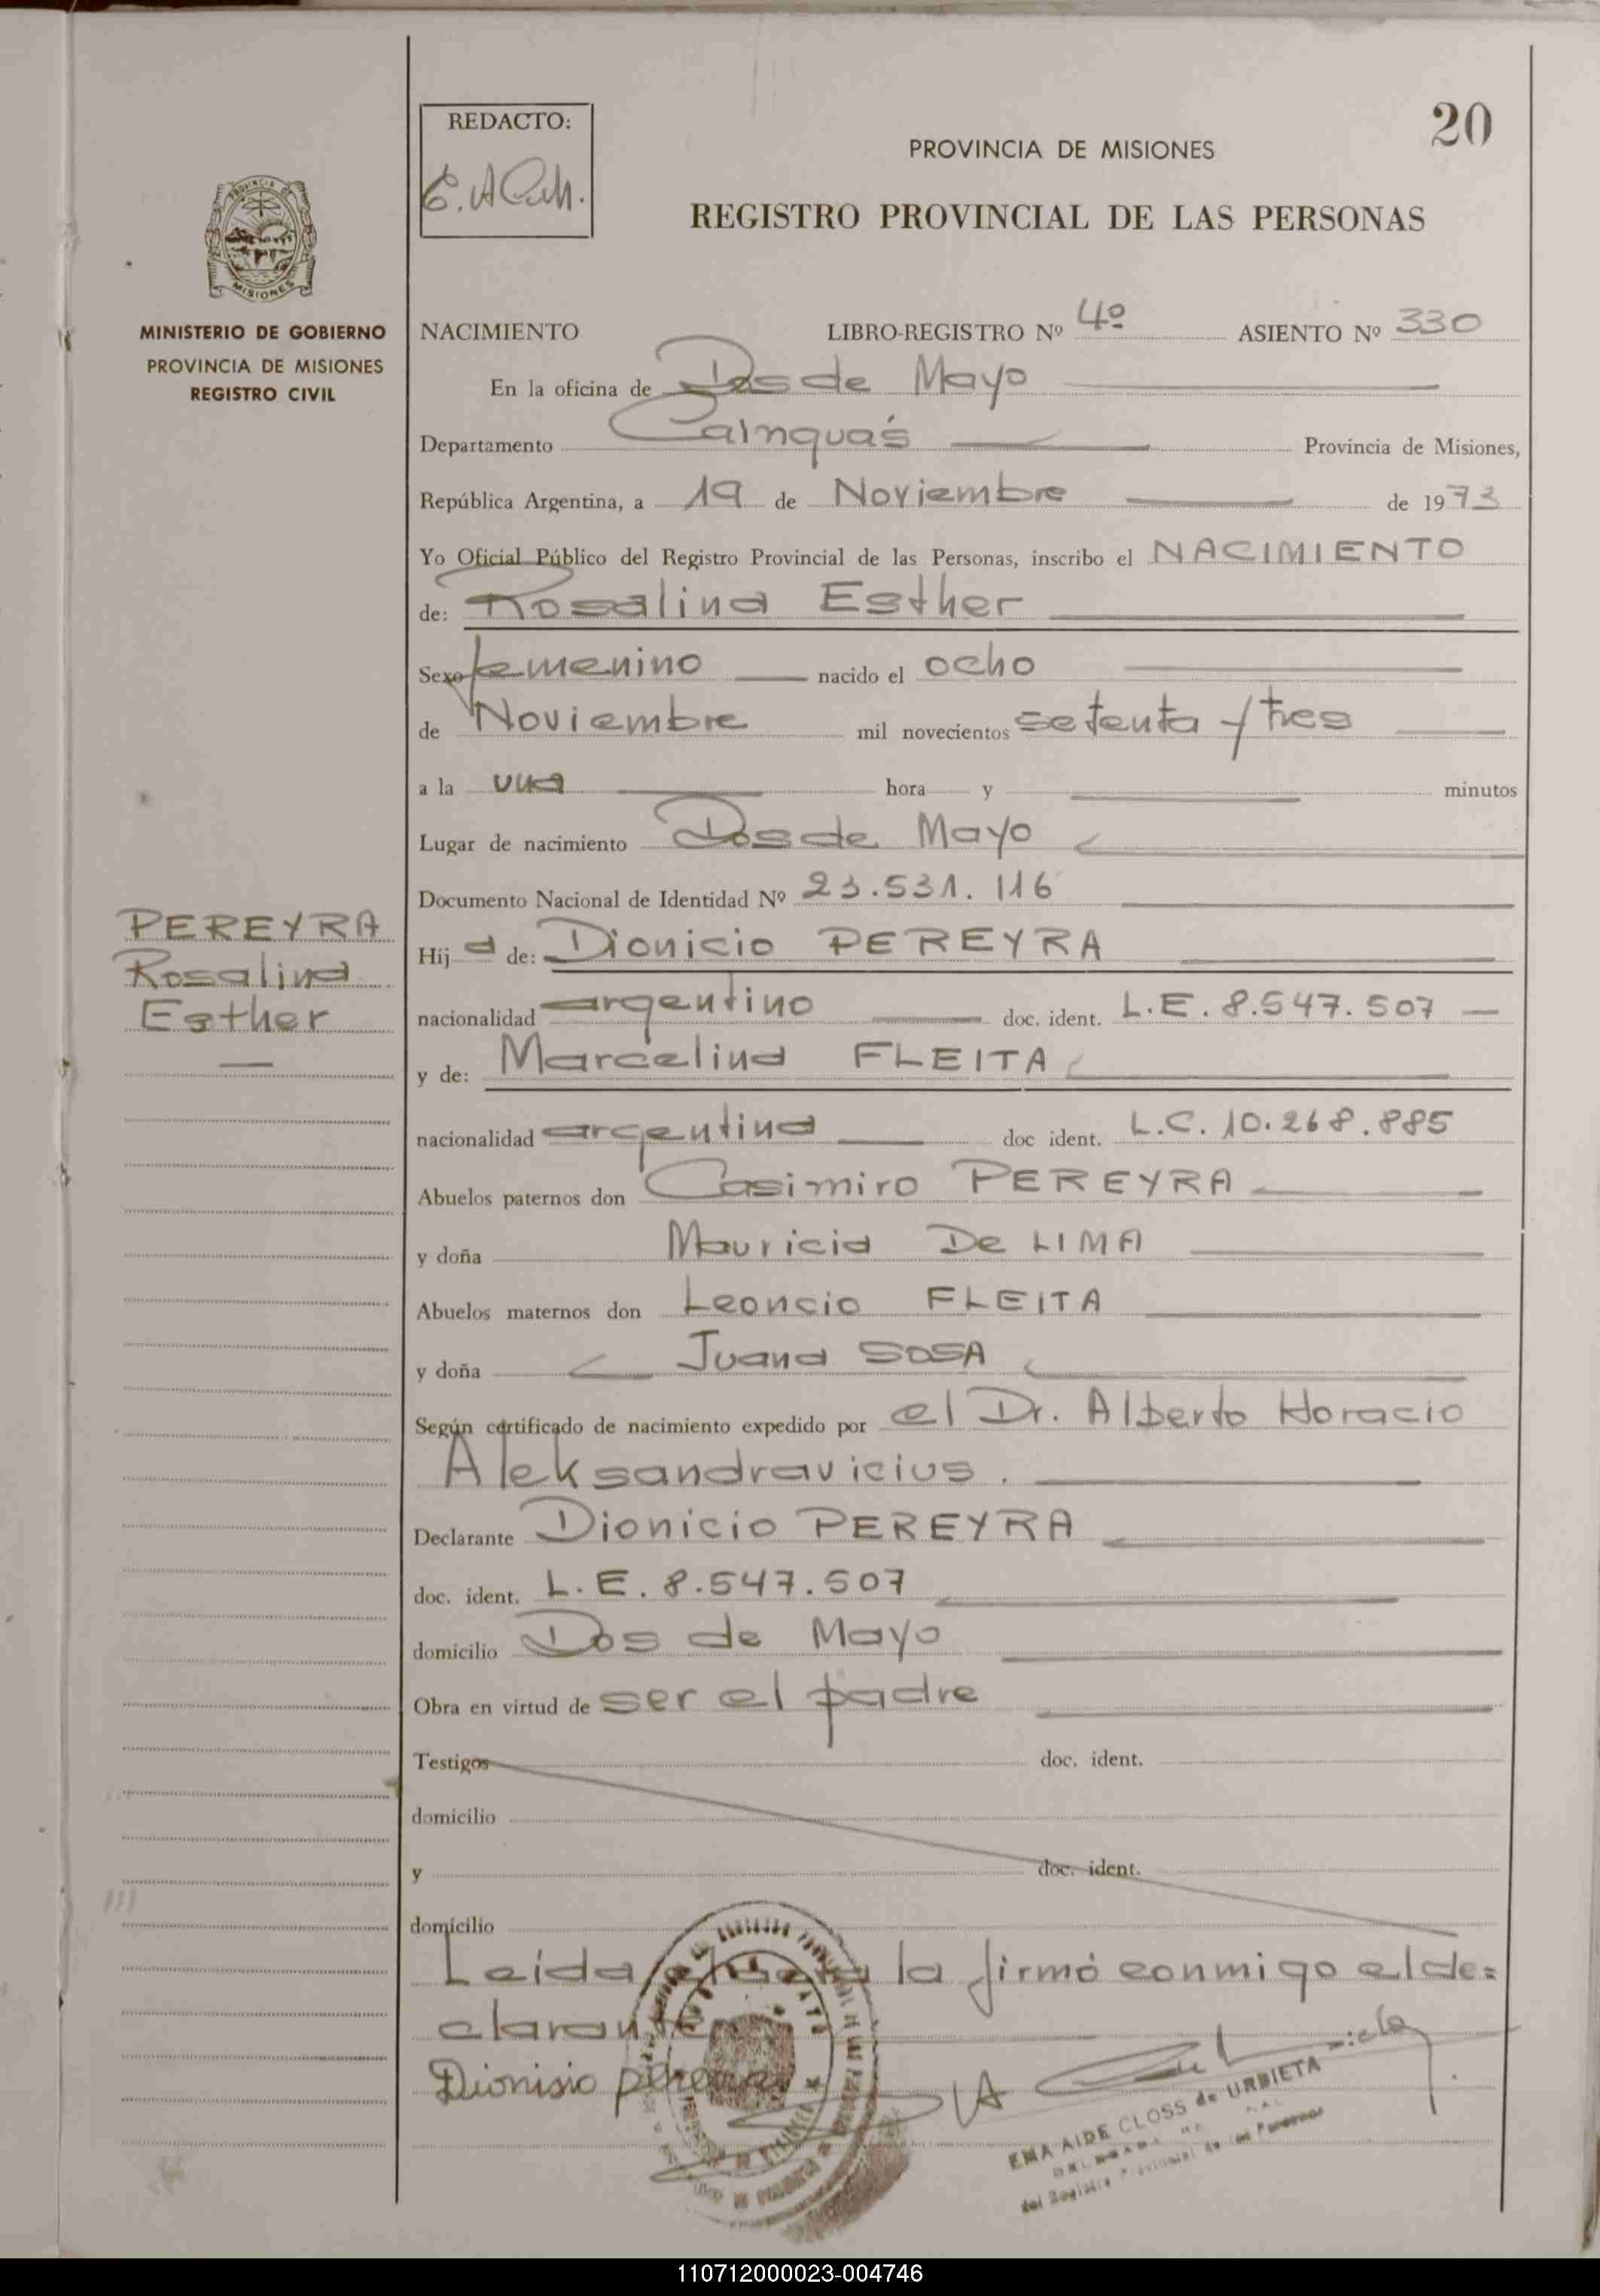 20
REDACTO:
PROVINCIA DE MISIONES
REGISTRO PROVINCIAL DE LAS PERSONAS
MISIONES
MINISTERIO DE GOBIERNO
PROVINCIA DE MISIONES
REGISTRO CIVIL
NACIMIENTO LIBRO-REGISTRO Nº 4º ASIENTO Nº 330
En la oficina de Dos de Mayo
Departamento Cainguás Provincia de Misiones,
República Argentina, a 19 de Noviembre de 1973
Yo Oficial Público del Registro Provincial de las Personas, inscribo el NACIMIENTO
de: Rosalina Esther
Sexo femenino nacido el ocho
de Noviembre mil novecientos setenta y tres
a la una hora y minutos
Lugar de nacimiento Dos de Mayo
Documento Nacional de Identidad Nº 23.531.116
PEREYRA
Rosalina
Esther
Hij a de: Dionicio PEREYRA
nacionalidad argentino doc. ident. L.E. 8.547.507
y de: Marcelina FLEITA
nacionalidad argentina doc ident. L.C. 10.268.885
Abuelos paternos don Casimiro PEREYRA
y doña Mauricia De LIMA
Abuelos maternos don Leoncio FLEITA
y doña Juana SOSA
Según certificado de nacimiento expedido por el Dr. Alberto Horacio
Aleksandravicius.
Declarante Dionicio PEREYRA
doc. ident. L.E. 8.547.507
domicilio Dos de Mayo
Obra en virtud de ser el padre
Testigos doc. ident.
domicilio
y doc. ident.
domicilio
Leida el acta la firmó conmigo el de=
clarante
Dionisio
EMA AIDE CLOSS de URBIETA
del Registro Provincial de las Personas
110712000023-004746